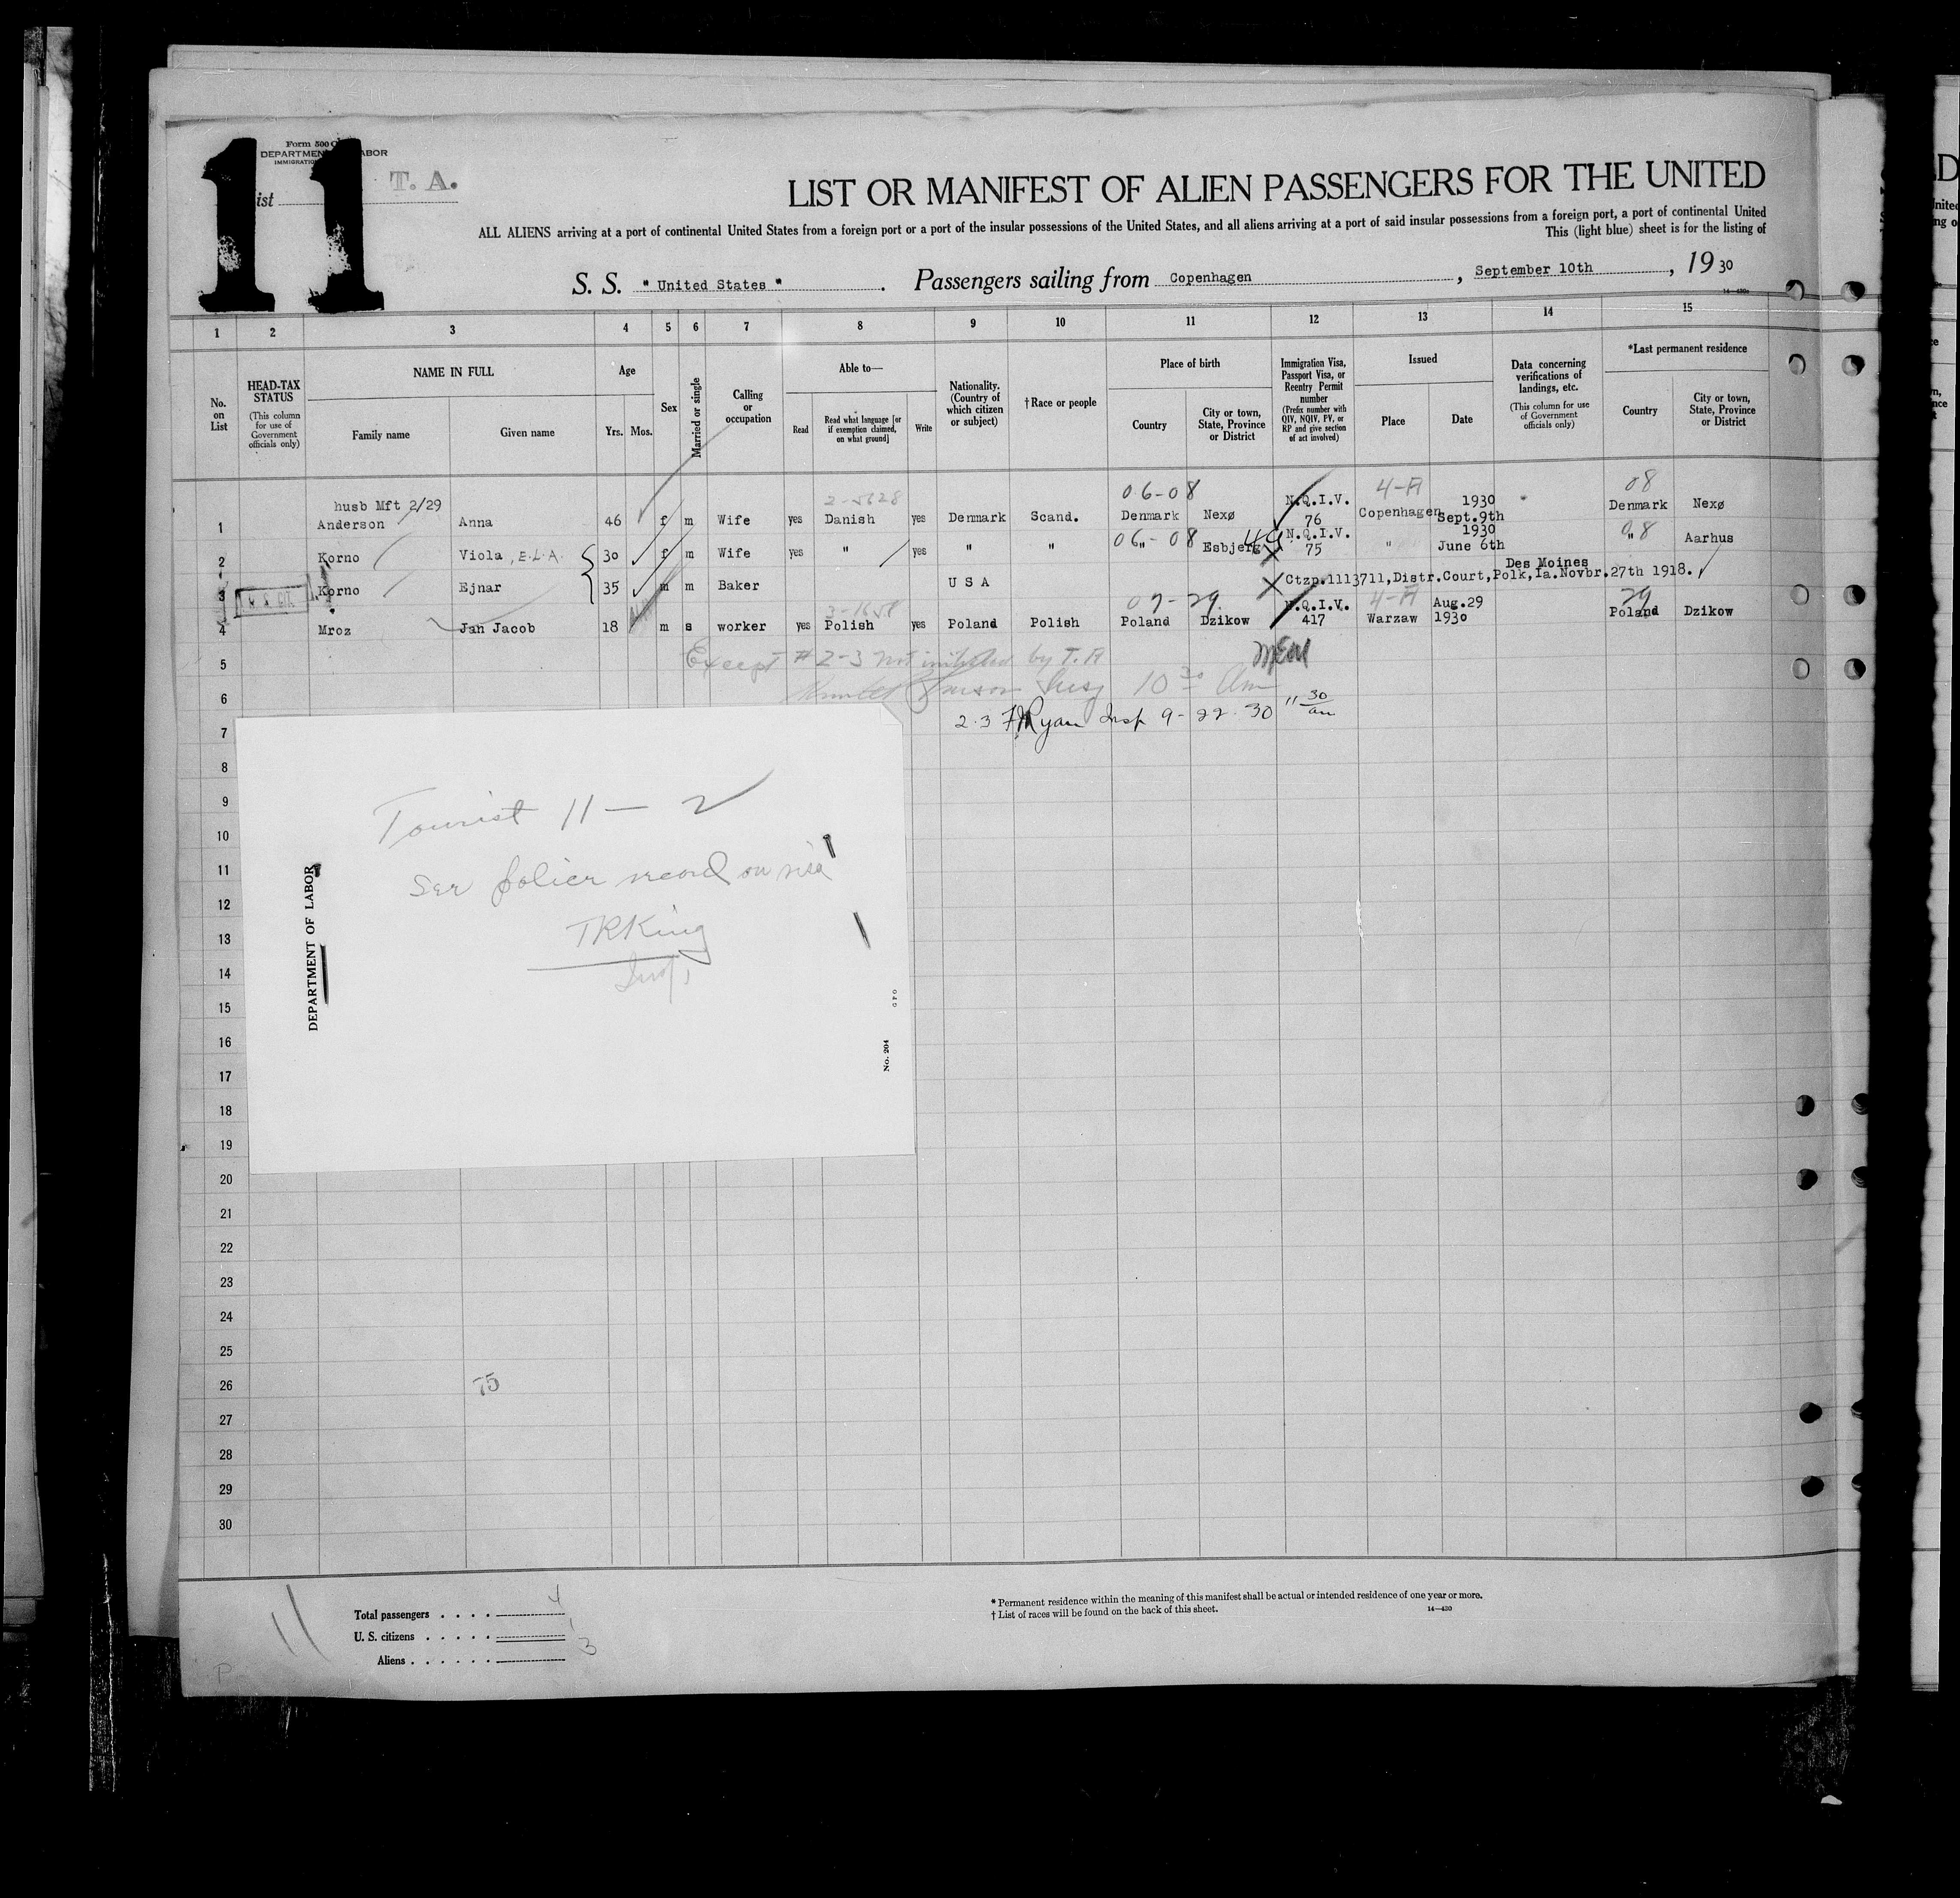 11
Form 500
DEPARTMENT LABOR
IMMIGRATION
ist T. A.
LIST OR MANIFEST OF ALIEN PASSENGERS FOR THE UNITED
ALL ALIENS arriving at a port of continental United States from a foreign port or a port of the insular possessions of the United States, and all aliens arriving at a port of said insular possessions from a foreign port, a port of continental United
This (light blue) sheet is for the listing of
S. S. " United States " . Passengers sailing from Copenhagen , September 10th , 19 30
1 2 3 4 5 6 7 8 9 10 11 12 13 14 15
No. on List
HEAD-TAX STATUS
(This column for use of Government officials only)
NAME IN FULL
Family name
Given name
Age
Yrs. Mos.
Sex
Married or single
Calling or occupation
Able to—
Read
Read what language [or if exemption claimed, on what ground]
Write
Nationality. (Country of which citizen or subject)
†Race or people
Place of birth
Country
City or town, State, Province or District
Immigration Visa, Passport Visa, or Reentry Permit number
(Prefix number with QIV, NQIV, PV, or RP and give section of act involved)
Issued
Place
Date
Data concerning verifications of landings, etc.
(This column for use of Government officials only)
*Last permanent residence
Country
City or town, State, Province or District
husb Mft 2/29 2-5628 06-08 N.Q.I.V. 4-A 1930 08
1 Anderson Anna 46 f m Wife yes Danish yes Denmark Scand. Denmark Nexø 76 Copenhagen Sept.9th Denmark Nexø
06-08 N.Q.I.V. 1930 08
2 Korno Viola, E.L.A. 30 f m Wife yes " yes " " " Esbjerg 75 " June 6th " Aarhus
Des Moines
3 Korno Ejnar 35 m m Baker U S A Ctzp.1113711,Distr.Court,Polk,Ia.Novbr.27th 1918.
3-1658 07-29. N.Q.I.V. 4-A Aug.29 29
4 Mroz Jan Jacob 18 m s worker yes Polish yes Poland Polish Poland Dzikow 417 Warzaw 1930 Poland Dzikow
5 Except #2-3 not initialed by T.A
6 10 30 Am
7 2.3 Ryan Insp 9-22-30 11 30 am
8
9
10
11
12
13
14
15
16
17
18
19
20
21
22
23
24
25
26 75
27
28
29
30
Tourist 11 — 2
See police record on visa
TRKing
Insp,
DEPARTMENT OF LABOR
No. 204
GPO
11
Total passengers . . . . 4
U. S. citizens . . . . . 1
Aliens . . . . . . 3
* Permanent residence within the meaning of this manifest shall be actual or intended residence of one year or more.
† List of races will be found on the back of this sheet.
14—430
P